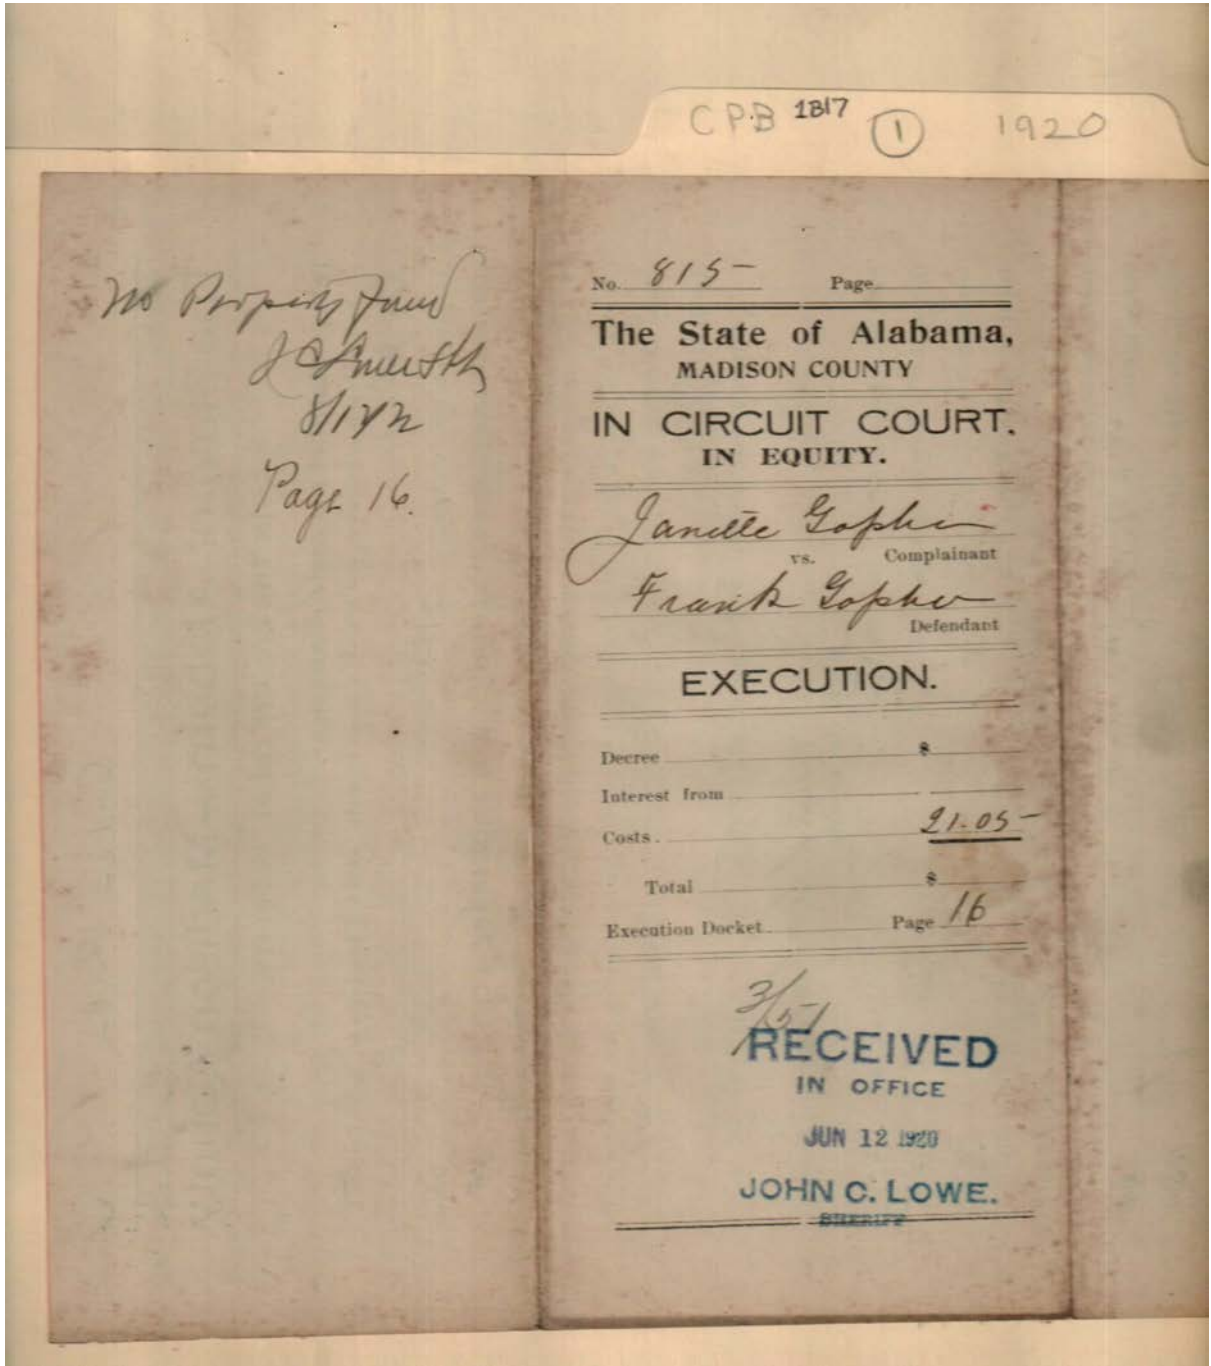 CPB 1817 1 1920
No Property Found
8/1
Page 16.
No. 815 Page
The State of Alabama,
MADISON COUNTY
IN CIRCUIT COURT.
IN EQUITY.
Janette Gopher
vs. Complainant
Frank Gopher
Defendant
EXECUTION.
Decree $
Interest from
Costs. 21.05
Total $
Execution Docket Page 16
RECEIVED
IN OFFICE
JUN 12 1920
JOHN C. LOWE.
SHERIFF